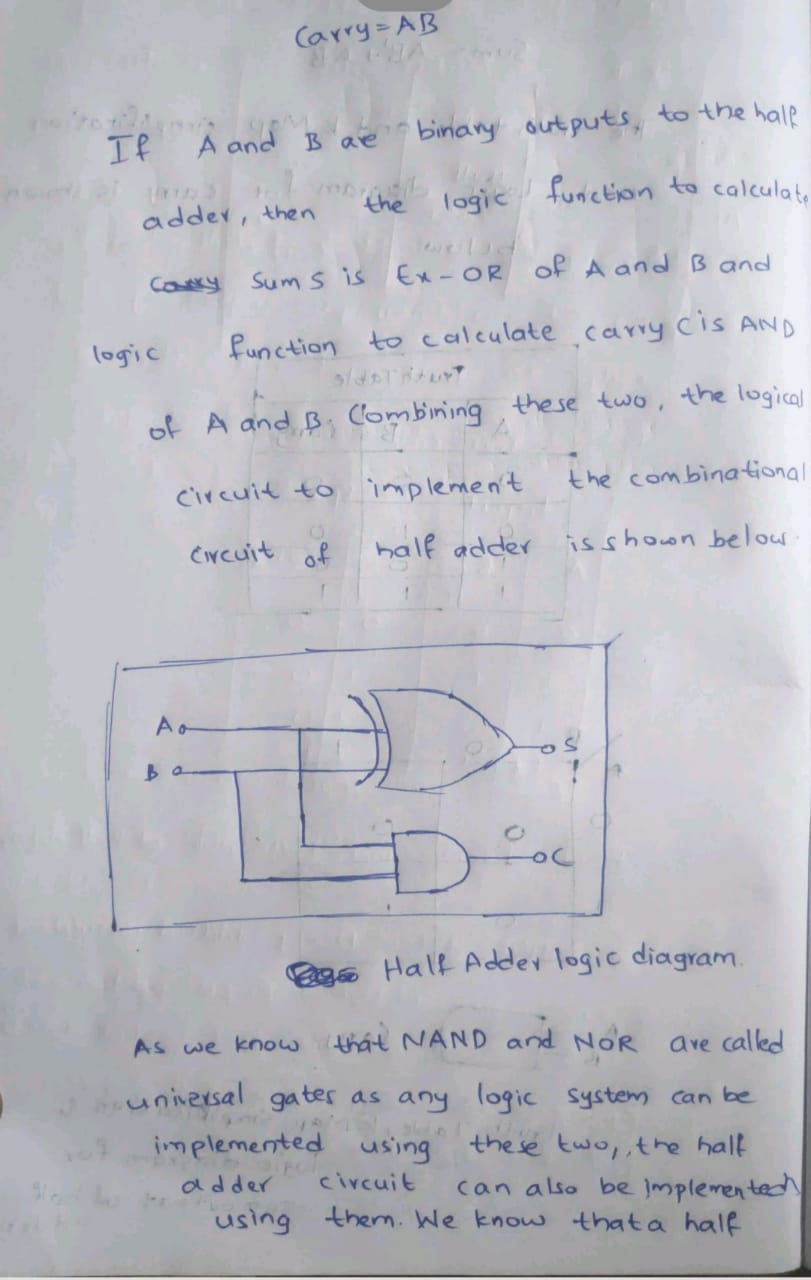 Carry = AB
If A and B are binary outputs, to the half
adder, then the logic function to calculate
Sum S is Ex-OR of A and B and
logic function to calculate carry C is AND
of A and B. Combining these two, the logical
circuit to implement the combinational
circuit of half adder is shown below.
A
B
S
C
Half Adder logic diagram.
As we know that NAND and NOR are called
universal gates as any logic system can be
implemented using these two, the half
adder circuit can also be implemented
using them. We know that a half